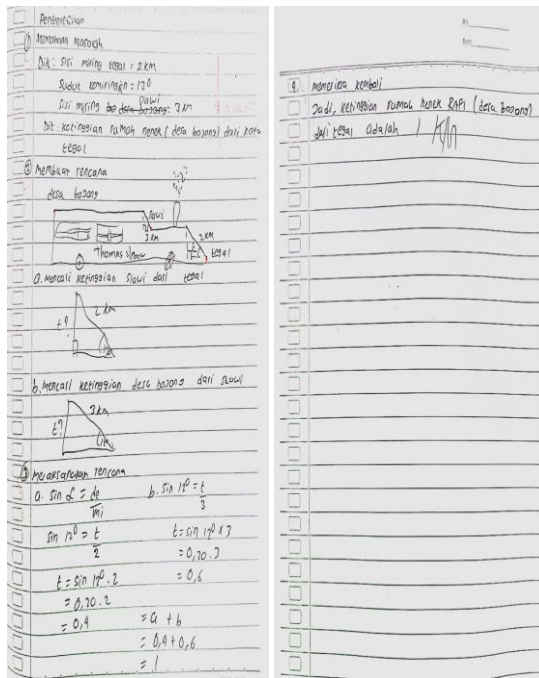 Penyelesaian
① Memahami Masalah
Dik: Sisi miring tegal = 2 km
Sudut kemiringan = 12°
Sisi miring slawi = 3 km
Dit: ketinggian rumah nenek (desa bojong) dari kota
tegal
② Membuat rencana
desa bojong
slawi
3 km
2 km
tegal
Thomas
a. Mencari ketinggian slawi dari tegal
2 km
t?
b. Mencari ketinggian desa bojong dari slawi
3 km
t?
③ Melaksanakan rencana
a. sin α = de
mi
sin 12° = t
2
t = sin 12° . 2
= 0,20 . 2
= 0,4
b. sin 12° = t
3
t = sin 12° x 3
= 0,20 . 3
= 0,6
= a + b
= 0,4 + 0,6
= 1
No
Date
4. memeriksa kembali
Jadi, ketinggian rumah nenek Rafi (desa bojong)
dari tegal adalah 1 km